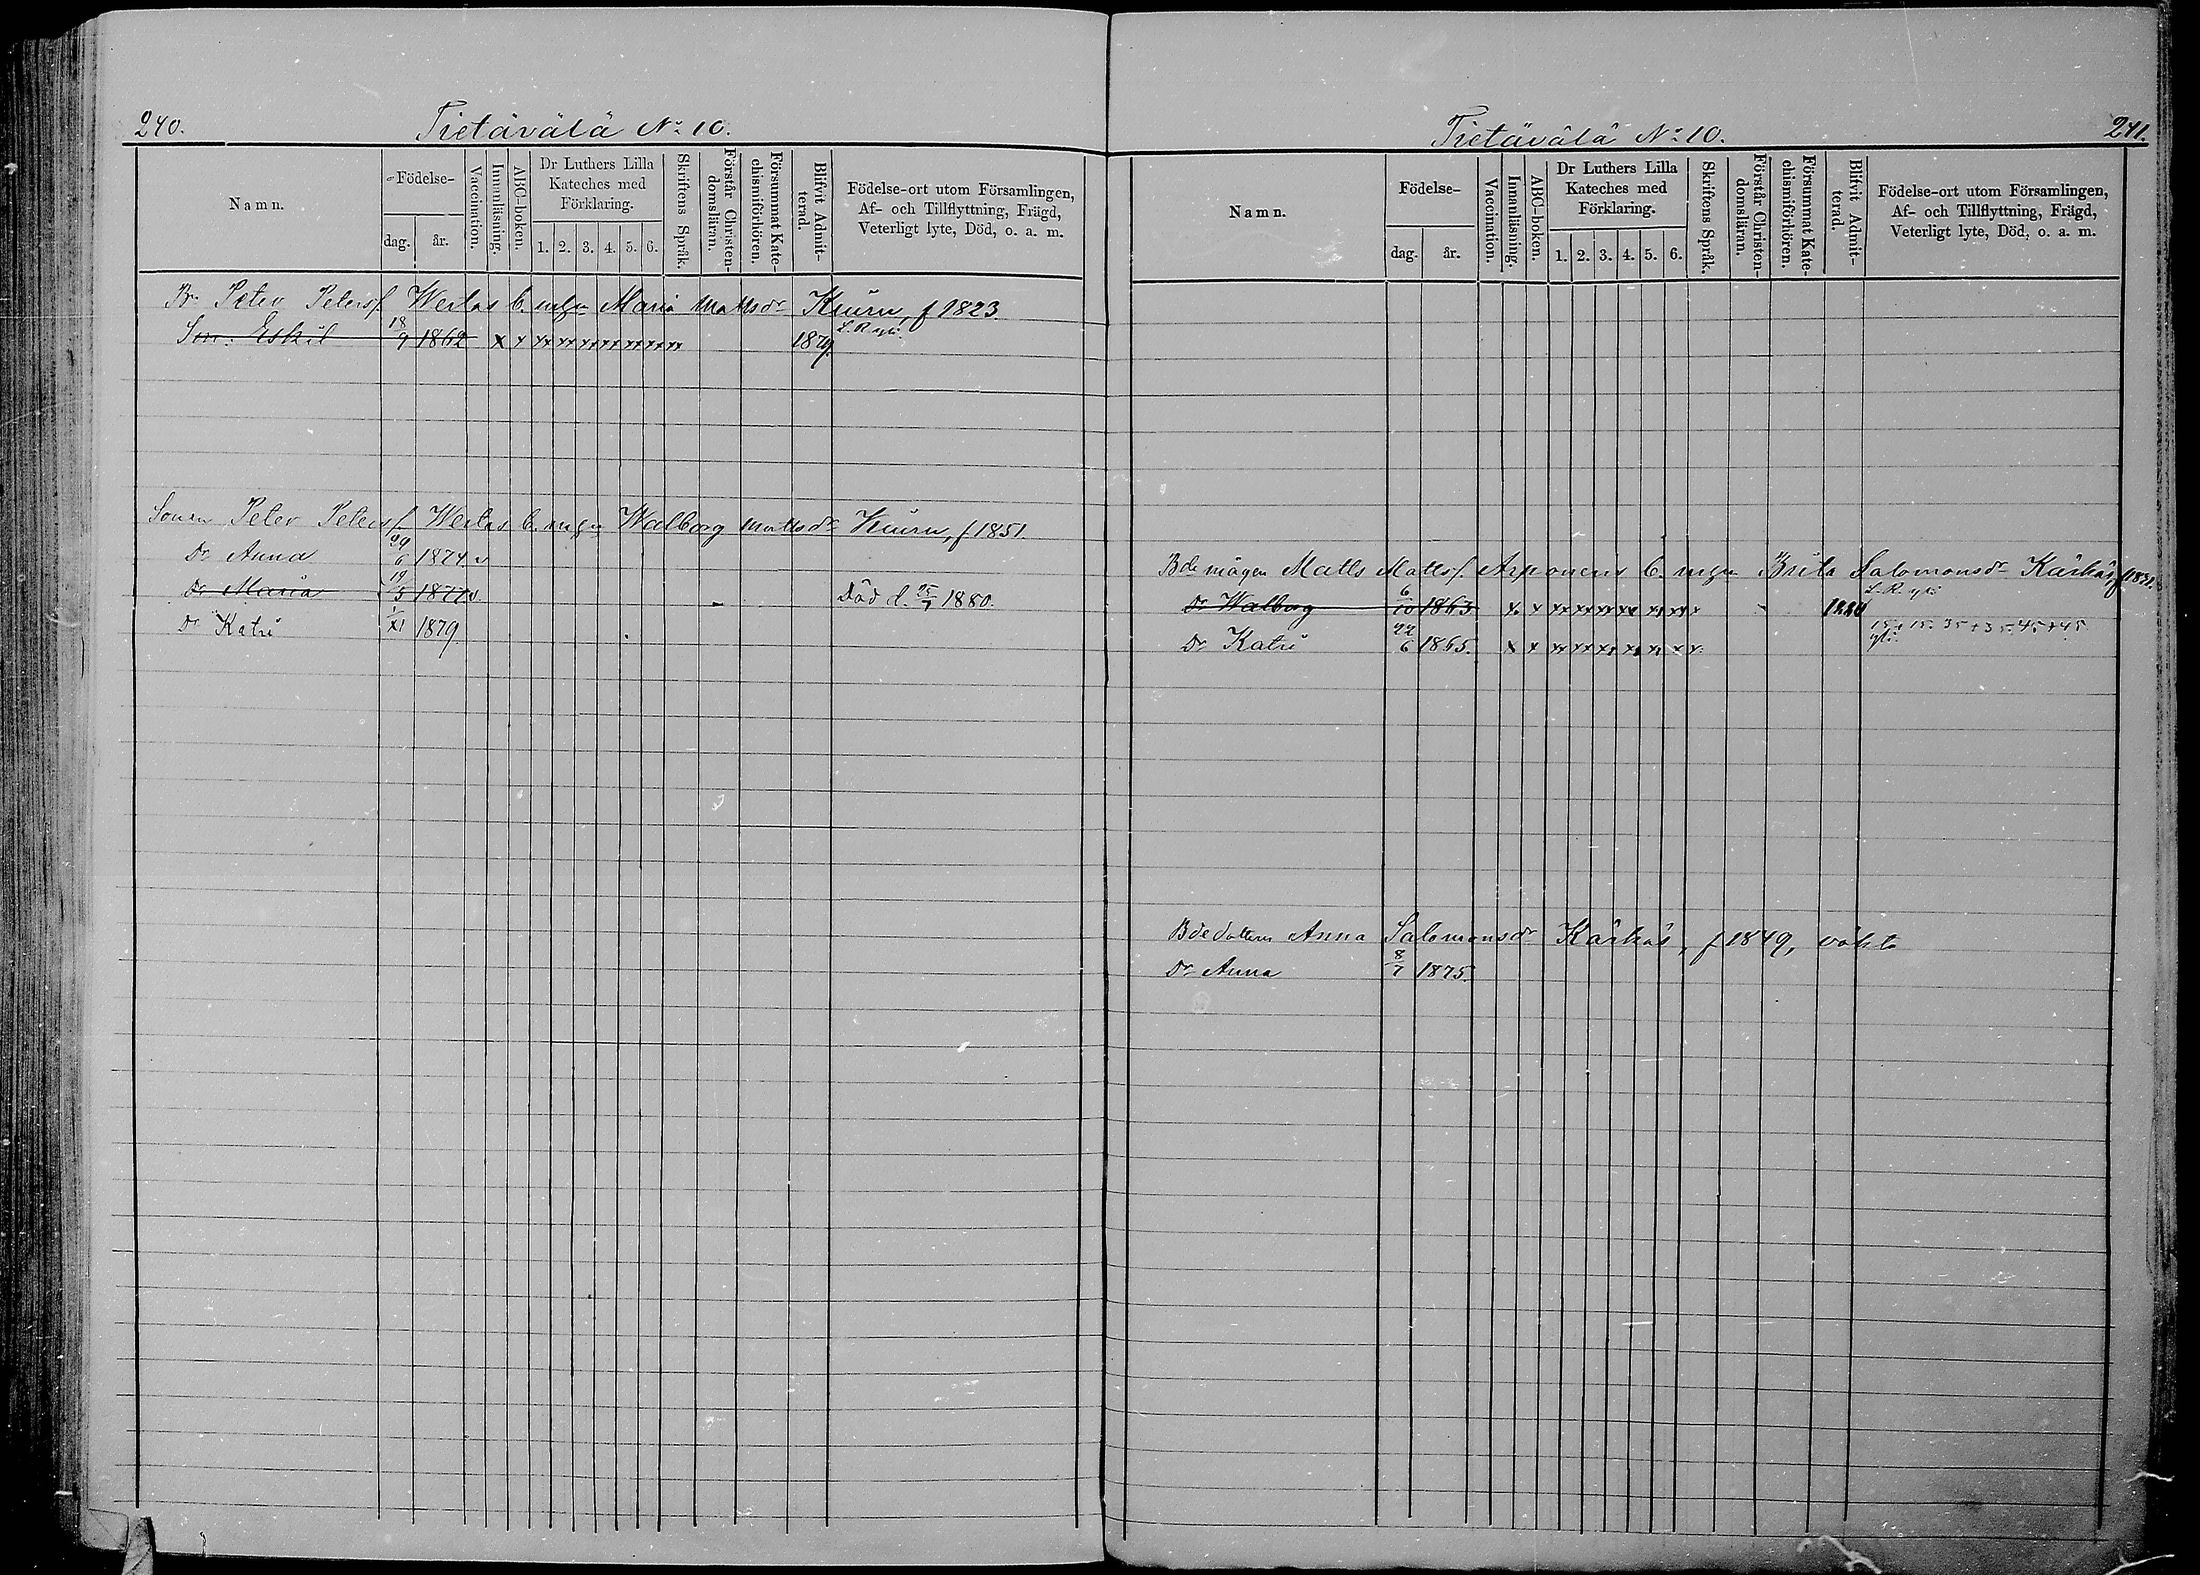 240.
Tietävälä No 10.
Namn.
Födelse-
dag.
år.
Vaccination.
Innanläsning.
ABC-boken.
Dr Luthers Lilla Kateches med Förklaring.
1. 2. 3. 4. 5. 6.
Skriftens Språk.
Förstår Christen-domsläran.
Försummat Kate-chismiförhören.
Blifvit Admit-terad.
Födelse-ort utom Församlingen,
Af- och Tillflyttning, Frägd,
Veterligt lyte, Död, o. a. m.
Br. Peter Petersf. Wertas b. mgn Maria Mattsdr Kiuru, f 1823.
Son. Eskil 18/9 1862 x x xx xx xx xx xx xx xx 1879. L. R. yli.
Sonen Peter Petersf. Wertas b. mgn Walborg Mattsdr Kiuru, f 1851.
Dr Anna 29/6 1874 v
Dr Maria 19/5 1877 v. Död d. 25/7 1880.
Dr Katri 1/XI 1879.
Tietävälä No 10.
241.
Namn.
Födelse-
dag.
år.
Vaccination.
Innanläsning.
ABC-boken.
Dr Luthers Lilla Kateches med Förklaring.
1. 2. 3. 4. 5. 6.
Skriftens Språk.
Förstår Christen-domsläran.
Försummat Kate-chismiförhören.
Blifvit Admit-terad.
Födelse-ort utom Församlingen,
Af- och Tillflyttning, Frägd,
Veterligt lyte, Död, o. a. m.
Bde mågen Matts Mattsf. Arponens b. mgn Brita Salomonsdr Kärkäs, f 1831.
Dr Walborg 6/10 1863 x x xx xx xx xx xx xx x 1880 L. R. yli
Dr Katri 22/6 1865. x x xx xx xx xx xx x x yli.
Bdedottern Anna Salomonsdr Kärkäs, f 1849,
Dr Anna 8/7 1875.